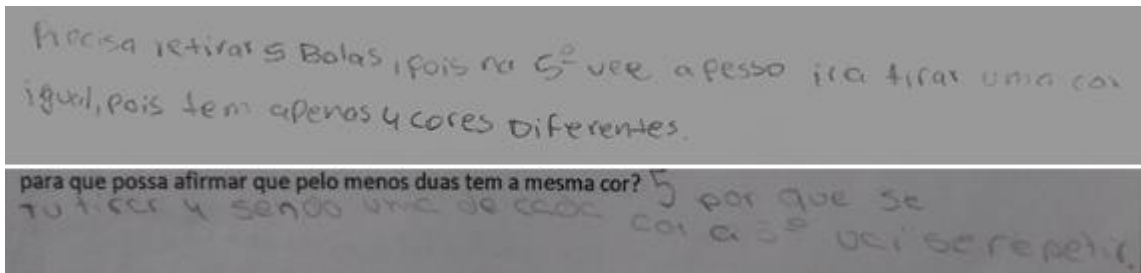 Precisa retirar 5 Bolas, pois na 5ª vee a pesso ira tirar uma cor
igual, pois tem apenas 4 cores Diferentes.
para que possa afirmar que pelo menos duas tem a mesma cor? 5 por que se
tirar 4 sendo uma de cada cor a 5ª vai se repetir.